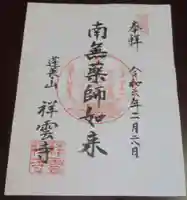 奉拝
令和六年二月二八日
南無薬師如来
蓬莱山
祥雲寺